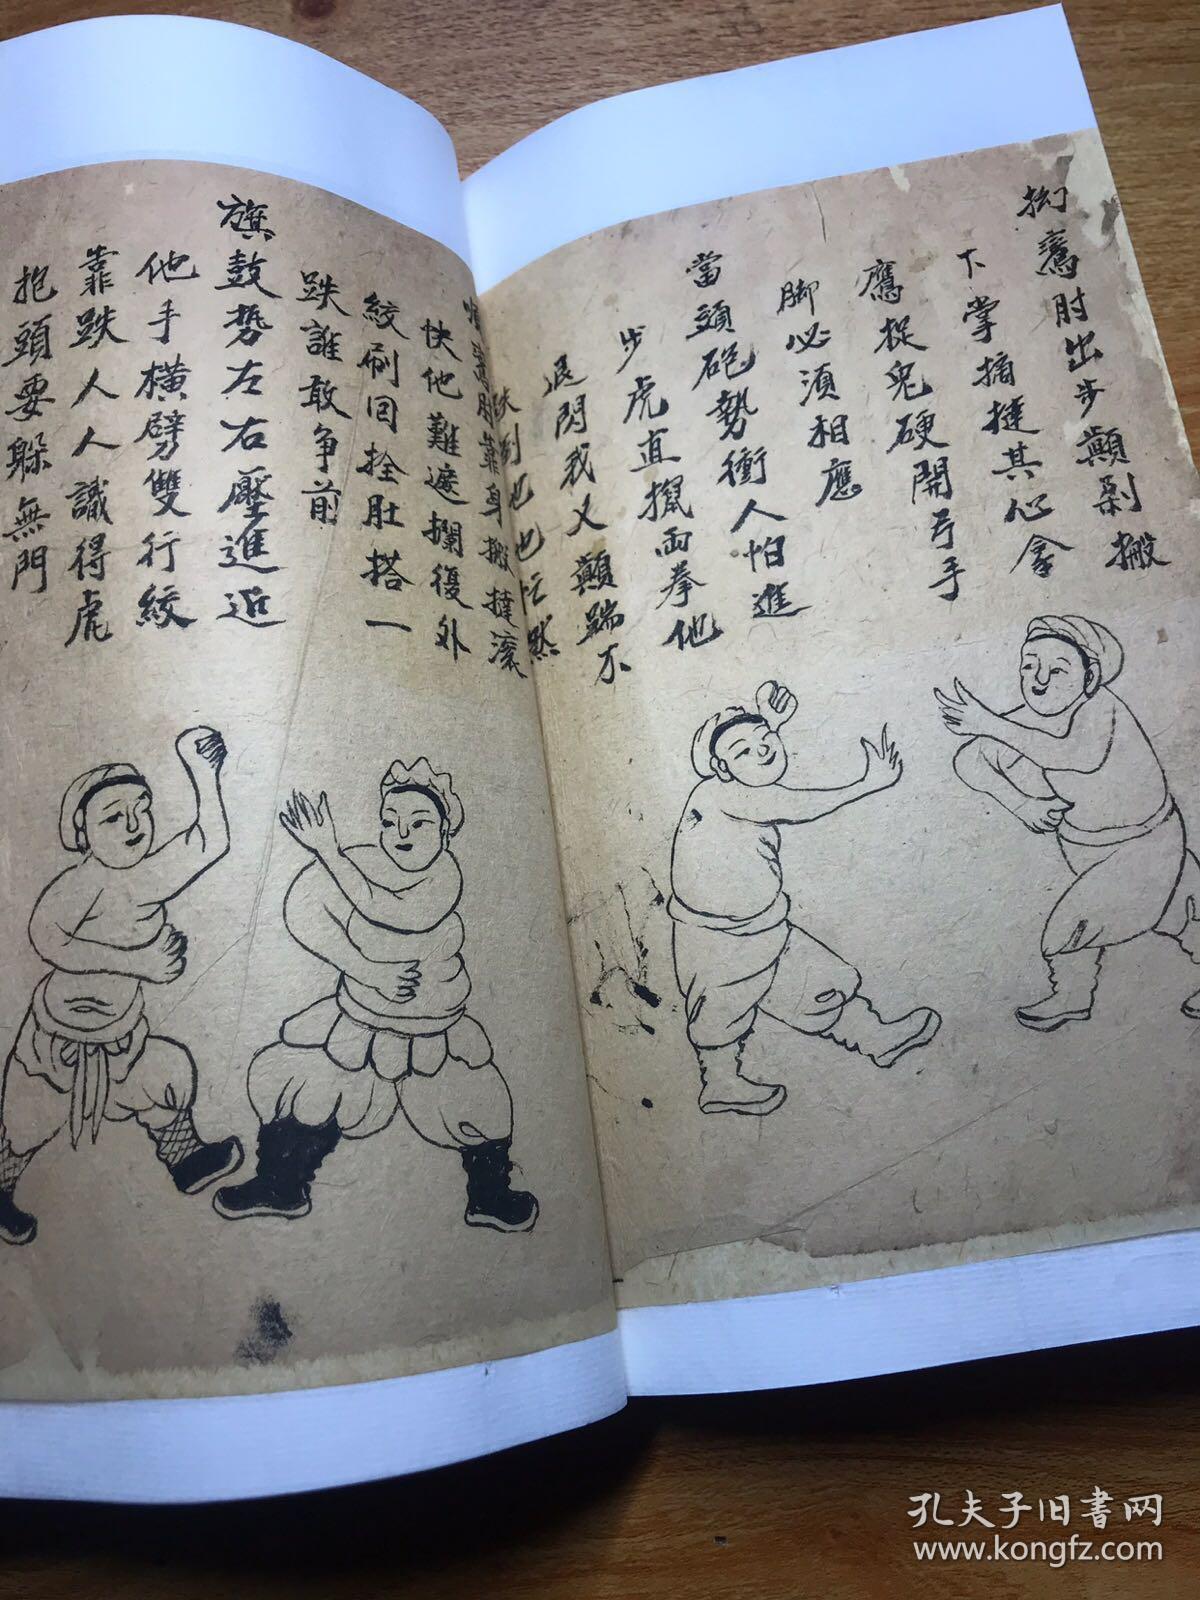 拗鸞肘出步顛剁搬
下掌摘撻其心拿
鷹捉兔硬開弓手
脚必須相應
當頭砲勢衝人怕進
步虎直攛兩拳他
退閃我又顛踹不
跌倒他也忙然
肘靠身搬撻滚
快他難遮攔復外
絞刷回拴肚搭一
跌誰敢争前
旗鼓勢左右壓進近
他手横劈雙行絞
靠跌人人識得虎
抱頭要躲無門
孔夫子旧書网
www.kongfz.com